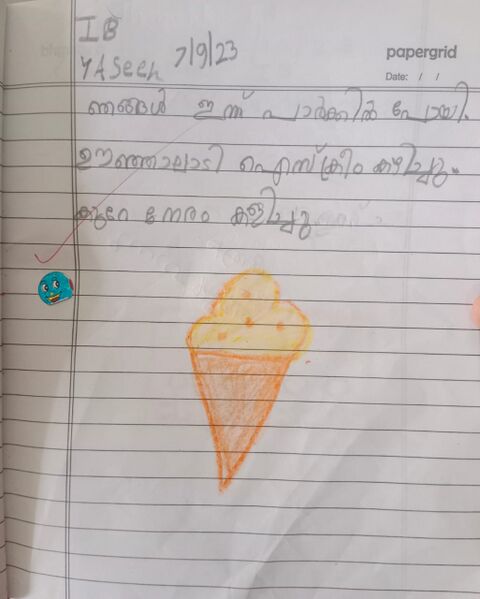 IB
YASeen 7/9/23
papergrid
Date: / /
ഞങ്ങൾ ഇന്ന് പാർക്കിൽ പോയി.
ഊഞ്ഞാലാടി ഐസ്ക്രീം കഴിച്ചു.
കുറേ നേരം കളിച്ചു